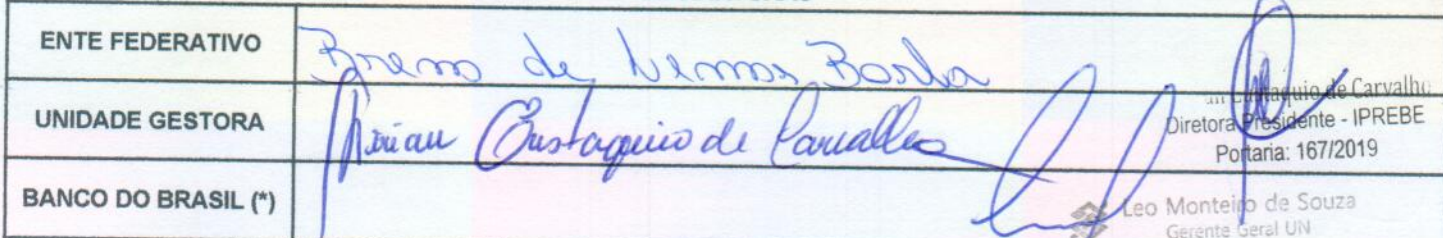 ENTE FEDERATIVO
Breno de Lemos Borba
UNIDADE GESTORA
Mirian Eustaquio de Carvalho
Eustaquio de Carvalho
Diretora Presidente - IPREBE
Portaria: 167/2019
BANCO DO BRASIL (*)
Leo Monteiro de Souza
Gerente Geral UN